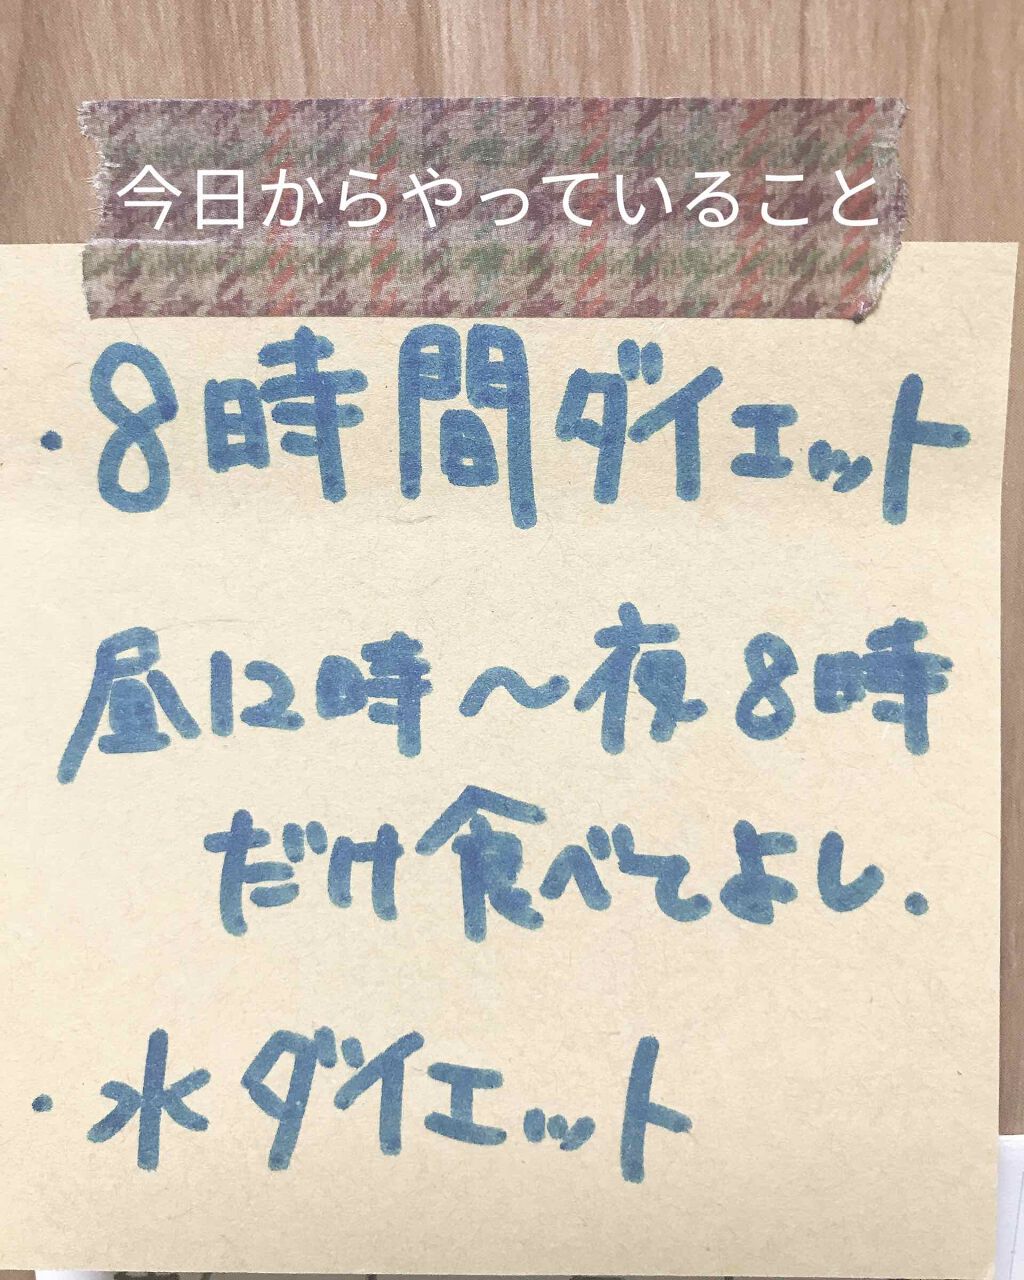 今日からやっていること
・8時間ダイエット
昼12時～夜8時
だけ食べてよし.
・水ダイエット